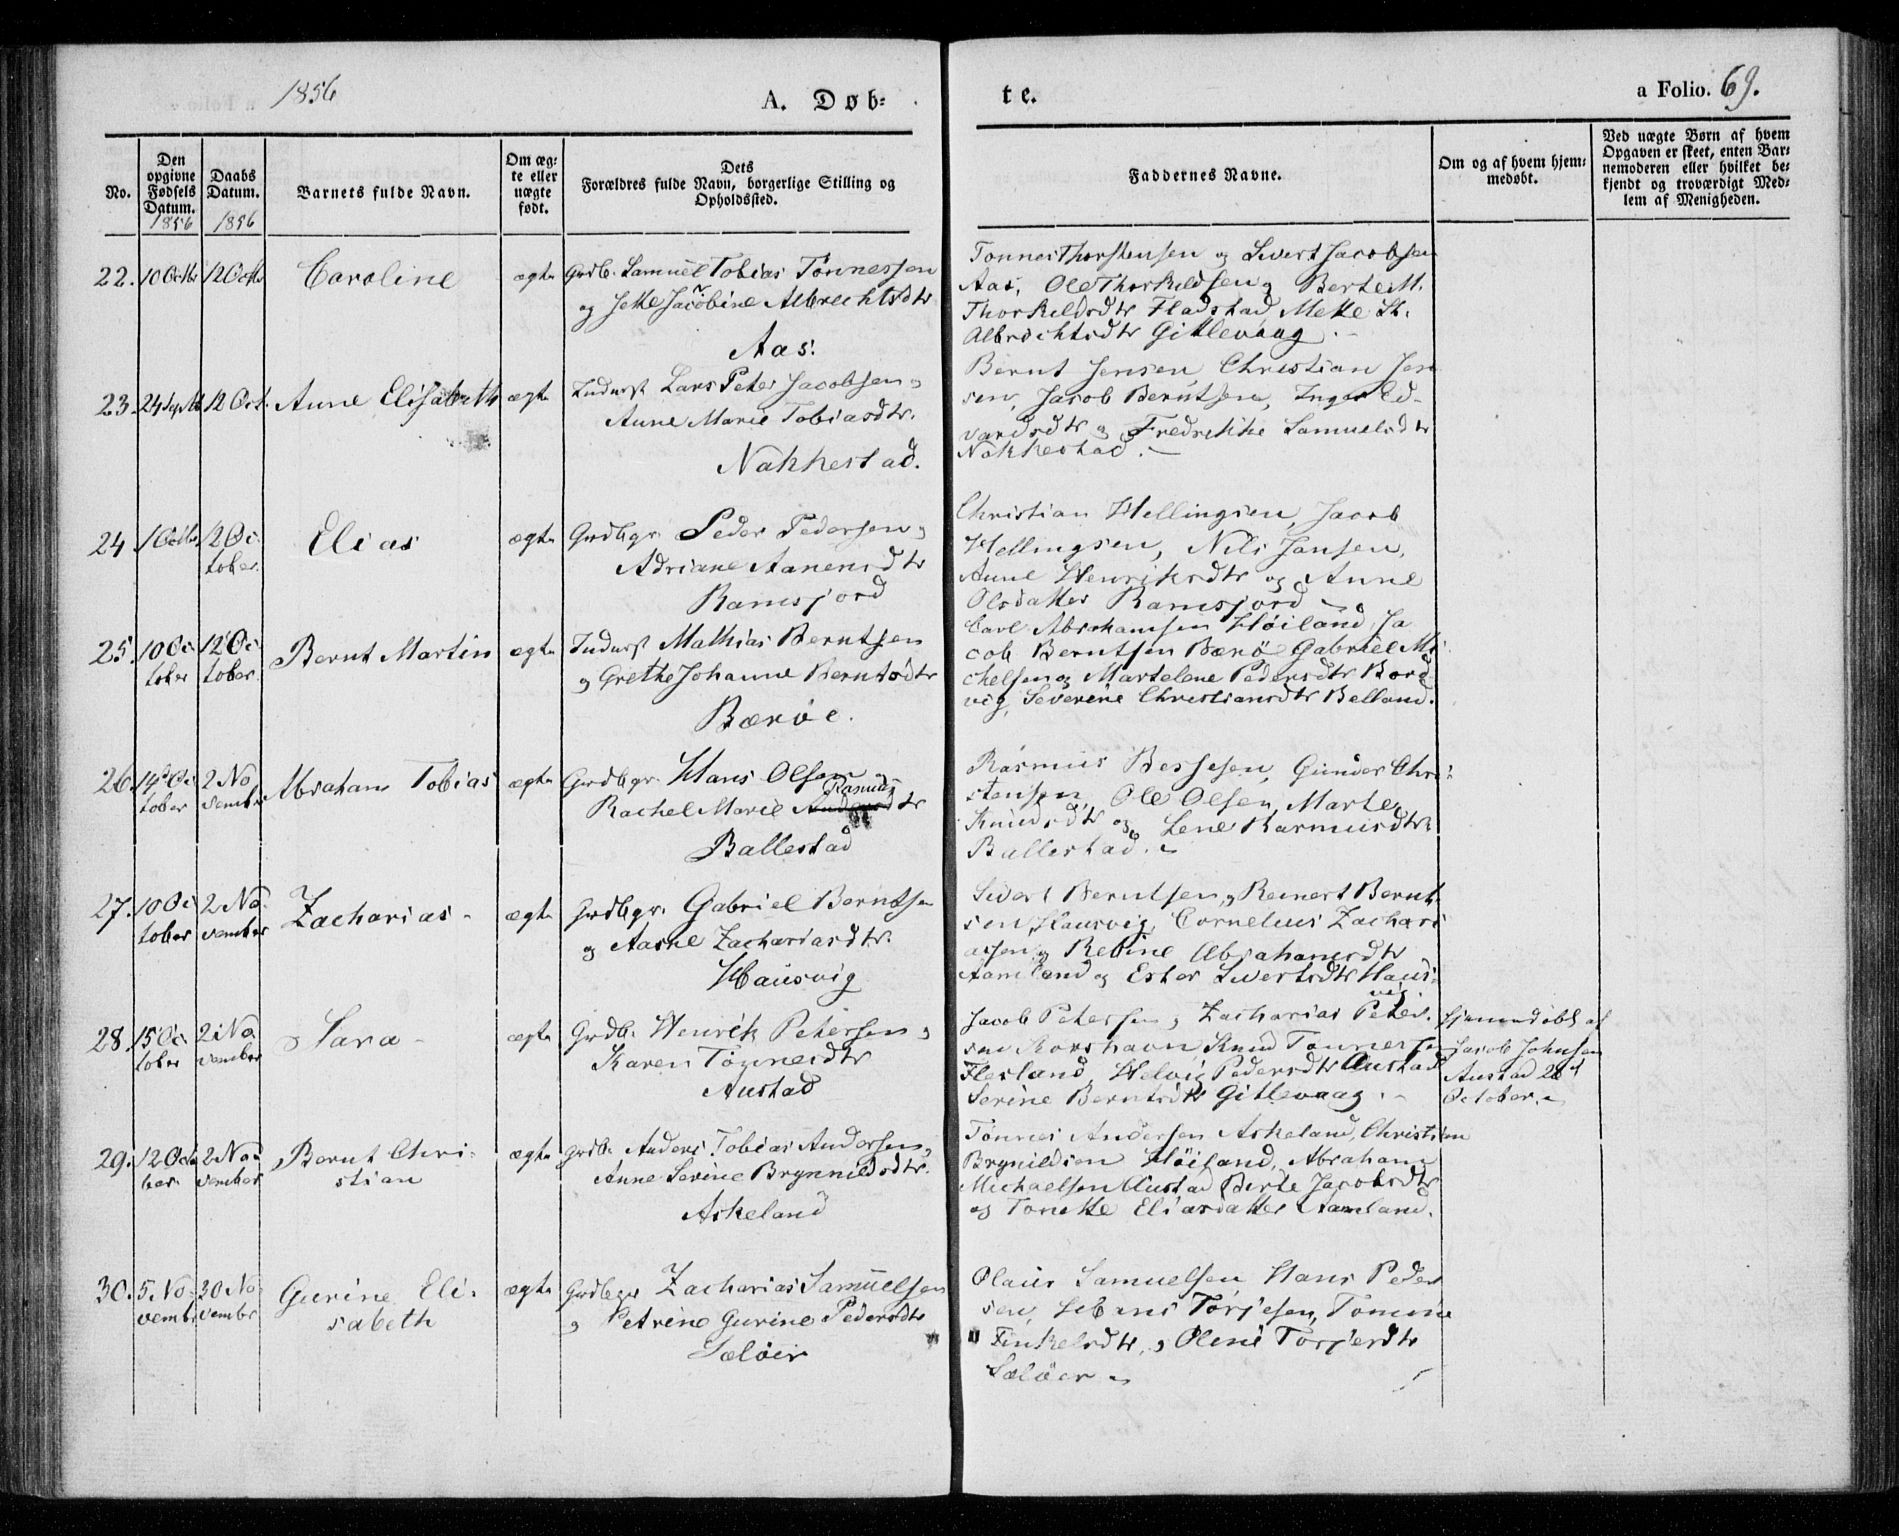 1856
A. Døb-
te.
a Folio. 69.
No.
Den opgivne Fødsels Datum. 1856
Daabs Datum. 1856
Barnets fulde Navn.
Om æg-
te eller
uægte
født.
Dets
Forældres fulde Navn, borgerlige Stilling og
Opholdssted.
Faddernes Navne.
Om og af hvem hjem-
medøbt.
Ved uægte Børn af hvem
Opgaven er skeet, enten Bar-
nemoderen eller hvilket be-
kjendt og troværdigt Med-
lem af Menigheden.
22. 10 Octbr 12 Octbr Caroline ægte Grdb. Samuel Tobias Tönnessen
og Jette Jacobine Albrechtsdtr
Aas.
Tönnes Thorstensen og Sivert Jacobsen
Aas, Ole Thorkildsen og Berte M.
Thorkildsdtr Fladstad, Mette St.
Albrechtsdtr Gitlevaag.
23. 24 Septbr 12 Oct. Anne Elisabeth ægte Inderst Lars Peter Jacobsen og
Anne Marie Tobiasdtr.
Nakkestad.
Bernt Jensen, Christian Jen
sen, Jacob Berntsen, Inger Ed-
vardsdtr og Fredrikke Samuelsdtr
Nakkestad.
24 1 Octbr 12 Oc-
tober. Elias ægte Grdbgr. Peder Pedersen og
Adriane Aanensdtr
Ramsjord
Christian Hellingsen, Jacob
Hellingsen, Nils Jansen,
Anne Henriksdtr og Anne
Olsdatter Ramsjord
25. 10 Oc-
tober 12 Oc-
tober. Bernt Martin ægte Inderst Mathias Berntsen
og Grethe Johanne Berntsdtr
Bærøe.
Carl Abrahamsen Høiland, Ja
cob Berntsen Bærö Gabriel Mi-
chelsen og Martelene Pedersdtr Bord
vig, Severine Christiansdtr Belland.
26. 14 Oc
tober 2 No
vember Abraham Tobias ægte Grdbgr. Hans Olsen og
Rachel Marie Rasmusdtr
Ballestad
Rasmus Bessesen, Gunder Chri-
stensen, Ole Olsen, Marte
Knudsdtr og Lene Rasmusdtr
Ballestad.
27. 10 Oc
tober 2 No-
vember Zacharias- ægte Grdbgr. Gabriel Berntsen
og Aasne Zachariasdtr.
Hausvig
Sivert Berntsen, og Reinert Bernt-
sen, Hausvig, Cornelius Zachari
assen og Rebine Abrahamsdtr
Aamland og Ester Sivertsdtr Haus-
vig
28. 15 Oc
tober 2 No
vember Sara- ægte Grdb. Henrik Petersen og
Karen Tönnesdtr
Austad
Jacob Petersen og Zacharias Peter-
sen Korshavn, Knud Tönnessen
Flesland, Helvig Pedersdtr Austad
Serine Berntsdtr Gitlevaag.
Hjemmedöbt af
Jacob Johnsen
Austad 28d
October.
29. 12 Octo
ber 2 No-
vember Bernt Chri-
stian ægte Grdb. Anders Tobias Andersen,
Anne Serine Brynnildsdtr.
Askeland
Tönnes Andersen Askeland, Christian
Brynildsen Høiland, Abraham
Michaelsen Austad, Berte Jacobsdtr
og Tonette Eliasdatter Aamland.
30. 5 No-
vembr 30 No-
vembr Gurine Eli-
sabeth ægte Grdbgr Zacharias Samuelsen
og Petrine Gurine Pedersdtr
Sælöer
Olaus Samuelsen Hans Peder
sen, Hans Törjesen, Tomine
Tinkelsdtr, og Olene Torjesdtr
Sælöer